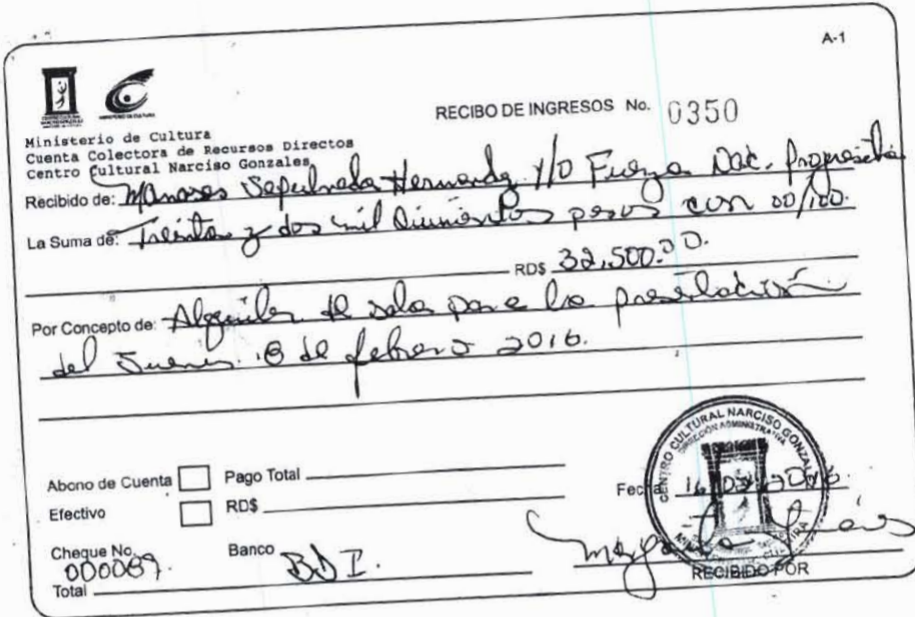 A-1
RECIBO DE INGRESOS No. 0350
Ministerio de Cultura
Cuenta Colectora de Recursos Directos
Centro Cultural Narciso Gonzales
Recibido de: Manases Sepulveda Hernandez Y/O Fuerza Nac. Progresista
La Suma de: Treinta y dos mil quinientos pesos con 00/100.
RD$ 32,500.00.
Por Concepto de: Alquiler de sala para la presentación
del Jueves 18 de febrero 2016.
Abono de Cuenta Pago Total
Efectivo RD$
Fecha 16
Cheque No. 000089. Banco BDI.
Total
RECIBIDO POR
CENTRO CULTURAL NARCISO GONZALEZ
DIRECCIÓN ADMINISTRATIVA